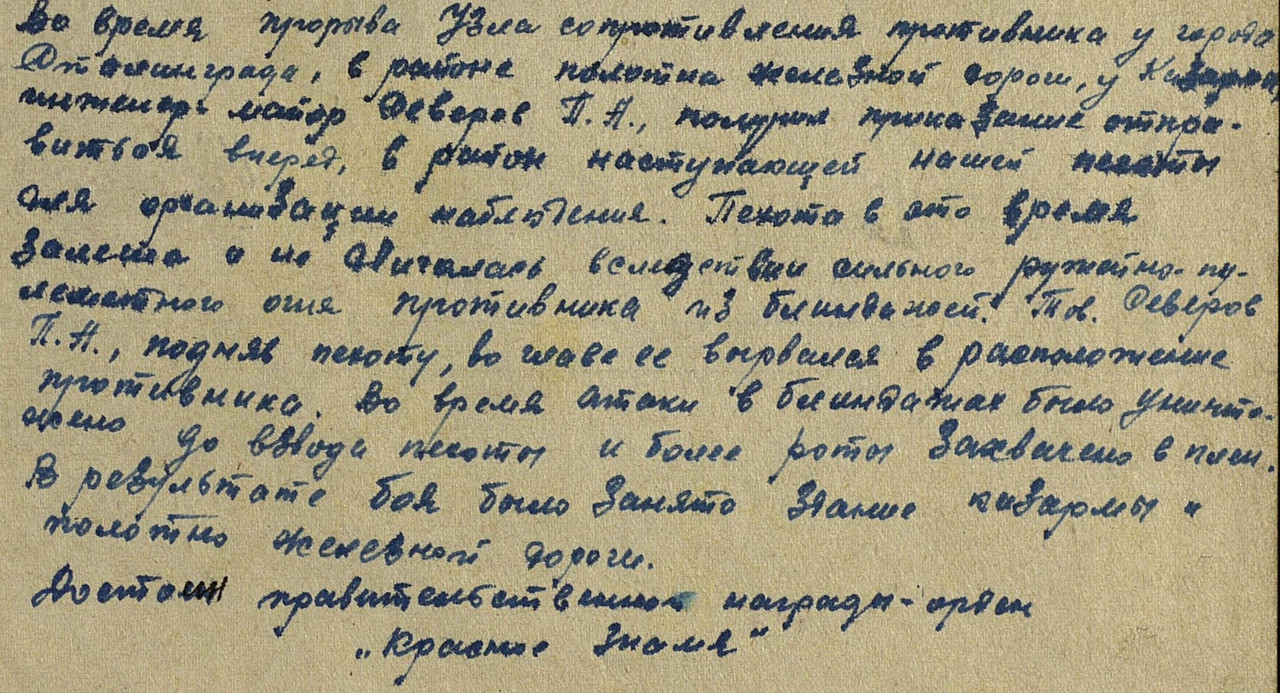 Во время прорыва Узла сопротивления противника у города
Сталинграда, в районе полотна железной дороги, у Казармы,
инженер майор Северов П.А., получил приказание отпра-
виться вперед, в район наступающей нашей пехоты
для организации наблюдения. Пехота в это время
Залегла и не двигалась, вследствии сильного ружейно-пу-
леметного огня противника из блиндажей. Тов. Северов
П.А., подняв пехоту, во главе ее ворвался в расположение
противника. Во время атаки в блиндажах было уничто-
жено до взвода пехоты и более роты Захвачено в плен.
В результате боя было Занято здание казармы и
полотно железной дороги.
Достоин правительственной награды - орден
„Красное Знамя"